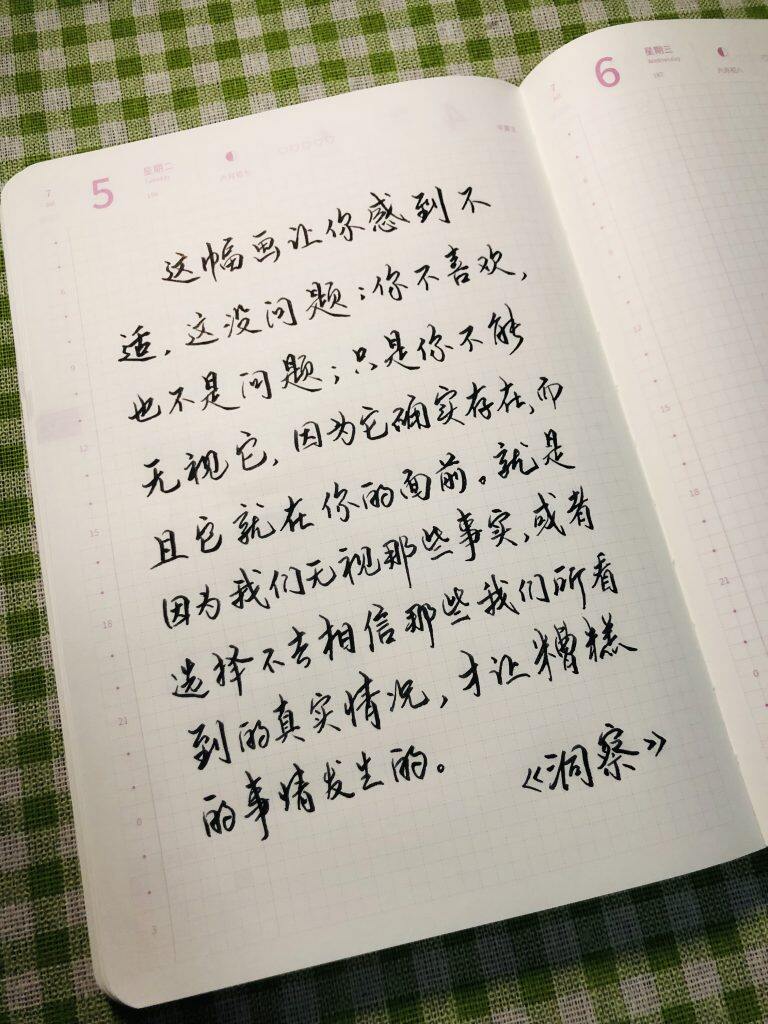 7
5
星期二
Tuesday
六月初七
7
6
星期三
Wednesday
187
六月初八
这幅画让你感到不
适，这没问题；你不喜欢，
也不是问题；只是你不能
无视它，因为它确实存在，而
且它就在你的面前。就是
因为我们无视那些事实，或者
选择不去相信那些我们所看
到的真实情况，才让糟糕
的事情发生的。
《洞察》
9
12
15
18
21
0
3
15
18
21
0